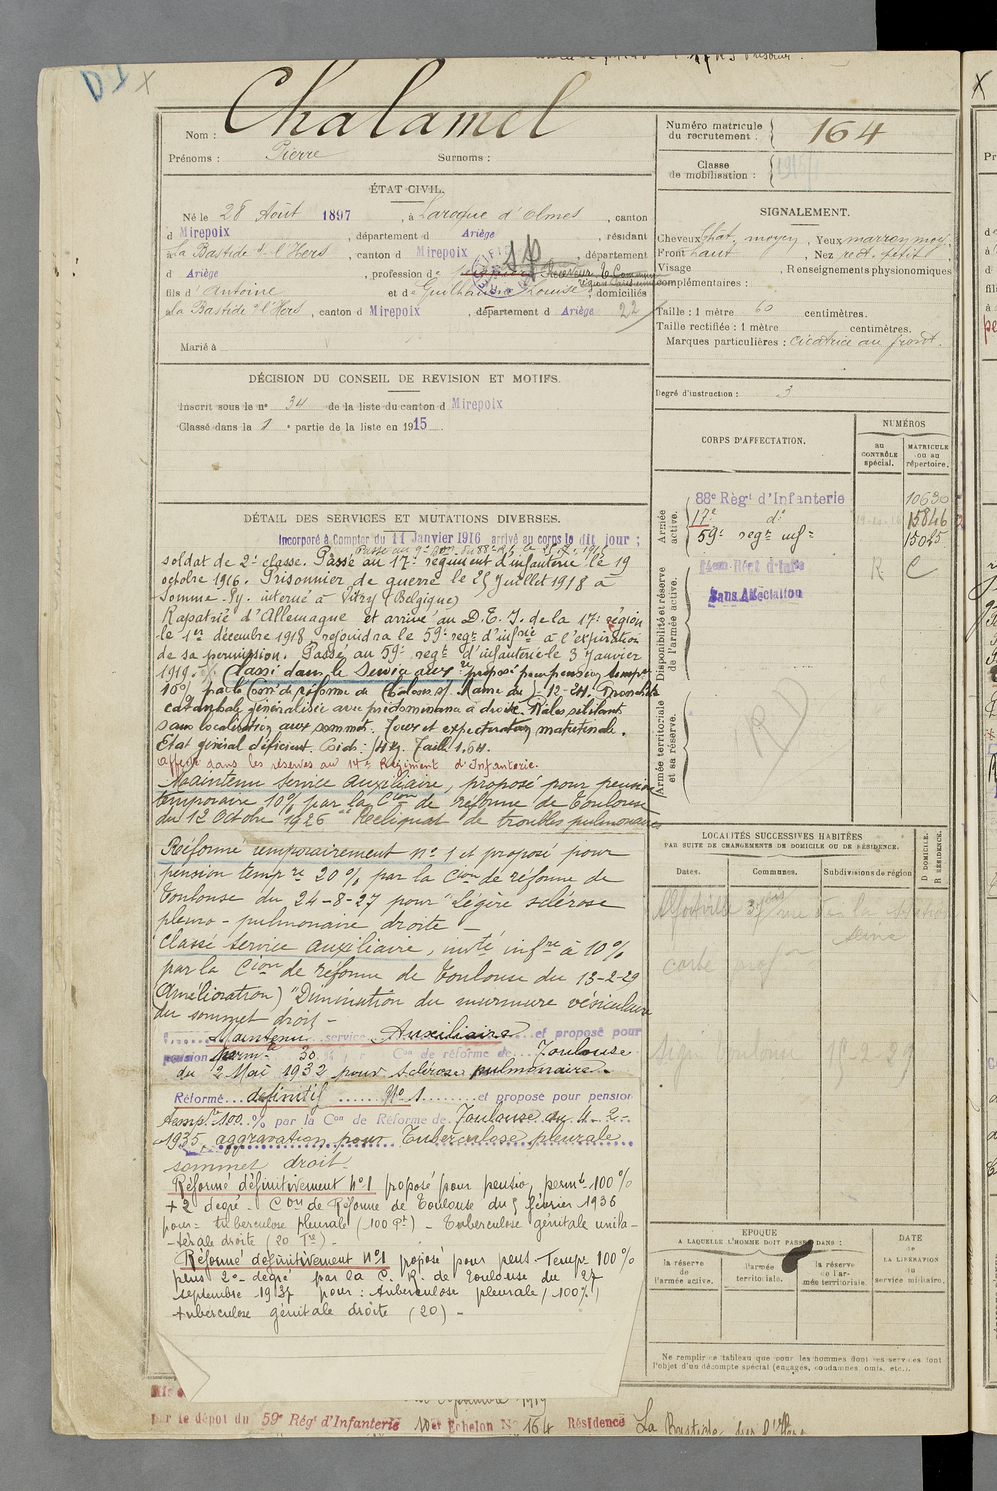 Nom : Chalamel
Prénoms : Pierre Surnoms :
Numéro matricule du recrutement : 164
Classe de mobilisation :
ÉTAT CIVIL.
Né le 28 Août 1897, à Laroque d'Olmes, canton
d Mirepoix, département d Ariège, résidant
à La Bastide s/ l'Hers, canton d Mirepoix, département
d Ariège, profession de
fils d'Antoine et de Guilhaume Louise, domiciliés
à La Bastide s/ l'Hers, canton d Mirepoix, département d Ariège 22
Marié à
SIGNALEMENT.
Cheveux chat. moyen, Yeux marron moy.
Front haut, Nez rect. petit
Visage , Renseignements physionomiques
complémentaires :
Taille : 1 mètre 60 centimètres.
Taille rectifiée : 1 mètre centimètres.
Marques particulières : cicatrice au front.
Degré d'instruction : 3
DÉCISION DU CONSEIL DE REVISION ET MOTIFS.
Inscrit sous le n° 34 de la liste du canton d Mirepoix
Classé dans la 1e partie de la liste en 1915.
DÉTAIL DES SERVICES ET MUTATIONS DIVERSES.
Incorporé à Compter du 11 Janvier 1916 arrivé au corps le dit jour ;
soldat de 2e classe. Passé au 17e régiment d'infanterie le 19
octobre 1916. Prisonnier de guerre le 25 Juillet 1918 à
Somme-Py. interné à Vitry (Belgique)
Rapatrié d'Allemagne et arrivé au D.E.I. de la 17e région
le 1er décembre 1918. rejoindra le 59e regt d'infrie à l'expiration
de sa permission. Passé au 59e regt d'infanterie le 3 Janvier
1919. Classé dans le service auxre proposé pour pension tempre
10% par la Con de réforme de
catarrhale généralisée avec prédominance à droite. Râles sibilant
sans localisation aux sommets. Toux et expectoration matutinale.
Etat général déficient. Taille 1.64.
Affecté dans les réserves au 14e Régiment d'Infanterie.
Maintenu service auxiliaire, proposé pour pension
temporaire 10% par la Cion de réforme de Toulouse
du 12 Octobre 1926 "Reliquat de troubles pulmonaires
Réformé temporairement n° 1 et proposé pour
pension tempre 20% par la Cion de réforme de
Toulouse du 24-8-27 pour "Légère sclérose
pleuro-pulmonaire droite -
Classé Service auxiliaire, invté infre à 10%
par la Cion de réforme de Toulouse du 13-2-29
(Amélioration) "Diminution du murmure vésiculaire
du sommet droit -
Maintenu service Auxiliaire et proposé pour
pension perm. 30 Con de réforme de Toulouse
du 2 Mai 1932 pour sclérose pulmonaire.
Réformé définitif N° 1 et proposé pour pension
temp. 100 % par la Con de Réforme de Toulouse du 4-2-
1935 aggravation pour Tuberculose pleurale
sommet droit.
Réformé définitivement n°1 proposé pour pension permte 100%
+ 2 degré - Con de Réforme de Toulouse du 5 février 1936
pour : tuberculose pleurale (100 Pt) - Tuberculose génitale unila-
-térale droite (20 Tre) -
Réformé définitivement n°1 proposé pour pens. Tempre 100%
plus 2e degré par la C. R. de Toulouse du 27
septembre 1937 pour : tuberculose pleurale (100%)
tuberculose génitale droite (20) -
par le dépôt du 59e Régt d'Infanterie 10er Echelon N° 164 Résidence La Bastide sur l'Hers
CORPS D'AFFECTATION.
NUMÉROS
au CONTRÔLE spécial.
MATRICULE ou au répertoire.
Armée active.
88e Régt d'Infanterie 10630
17e do 15846
59e regt infie 15045
Disponibilité et réserve de l'armée active.
Sans Affectation
R C
Armée territoriale et sa réserve.
LOCALITÉS SUCCESSIVES HABITÉES
PAR SUITE DE CHANGEMENTS DE DOMICILE OU DE RÉSIDENCE.
D DOMICILE. R RÉSIDENCE.
Dates. Communes. Subdivisions de région
Alfortville 37 bis rue de la Station
Seine
Toulouse 15-2-29
EPOQUE
A LAQUELLE L'HOMME DOIT PASSER DANS :
la réserve de l'armée active.
l'armée territoriale.
la réserve de l'armée territoriale.
DATE de LA LIBÉRATION du service militaire.
Ne remplir ce tableau que pour les hommes dont les services font
l'objet d'un décompte spécial (engagés, condamnés, omis, etc...